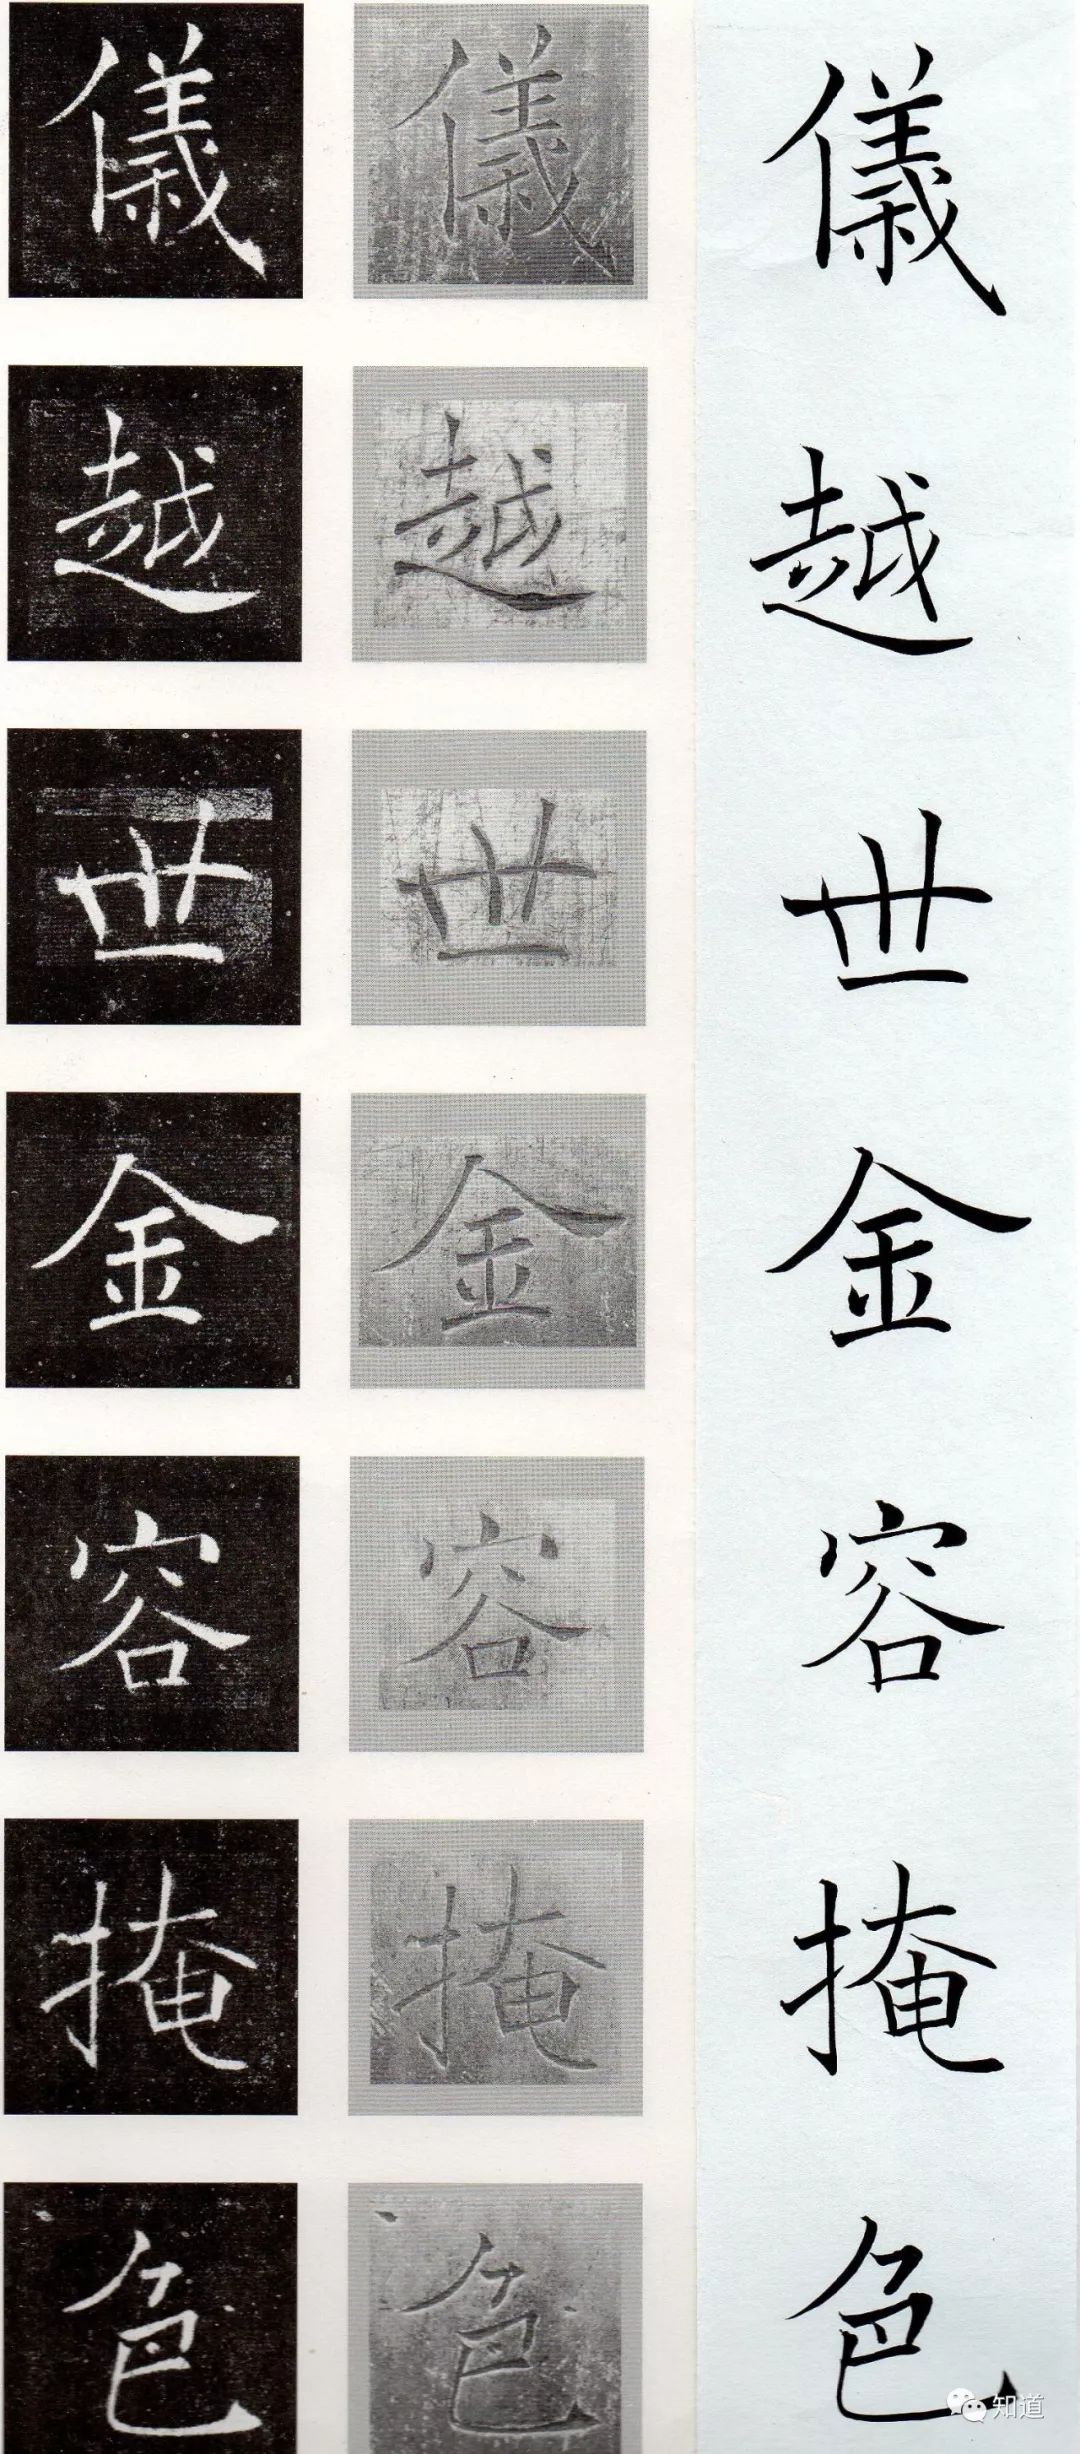 儀 儀 儀
越 越 越
世 世 世
金 金 金
容 容 容
掩 掩 掩
色 色 色
知道